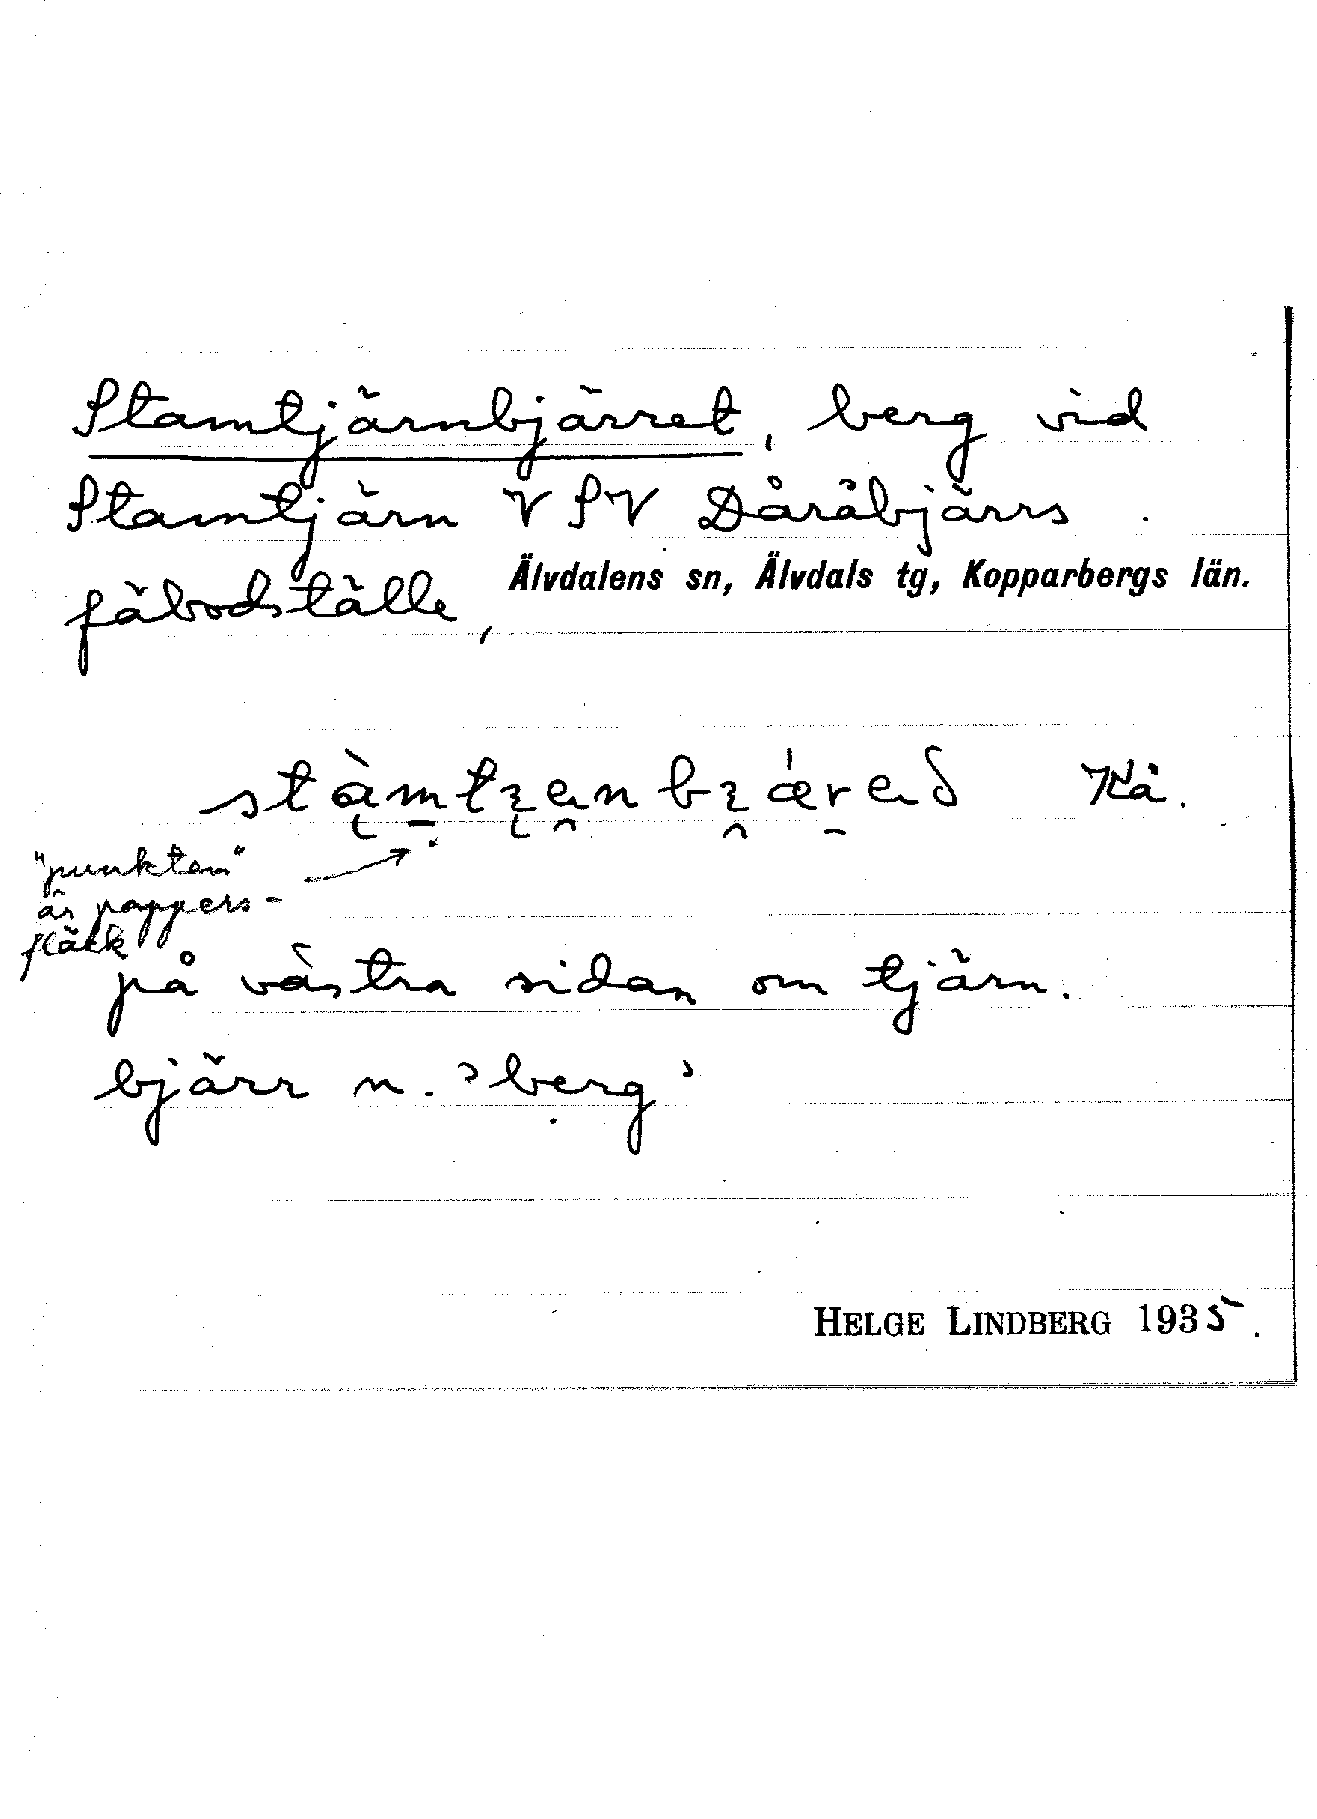 Stamtjärnbjärret, berg vid
Stamtjärn VSV Dåråbjärrs
fäbodställe,
Älvdalens sn, Älvdals tg, Kopparbergs län.
Kå.
"punkten"
är pappers-
fläck
på västra sidan om tjärn.
bjärr n. 'berg'
HELGE LINDBERG 1935.